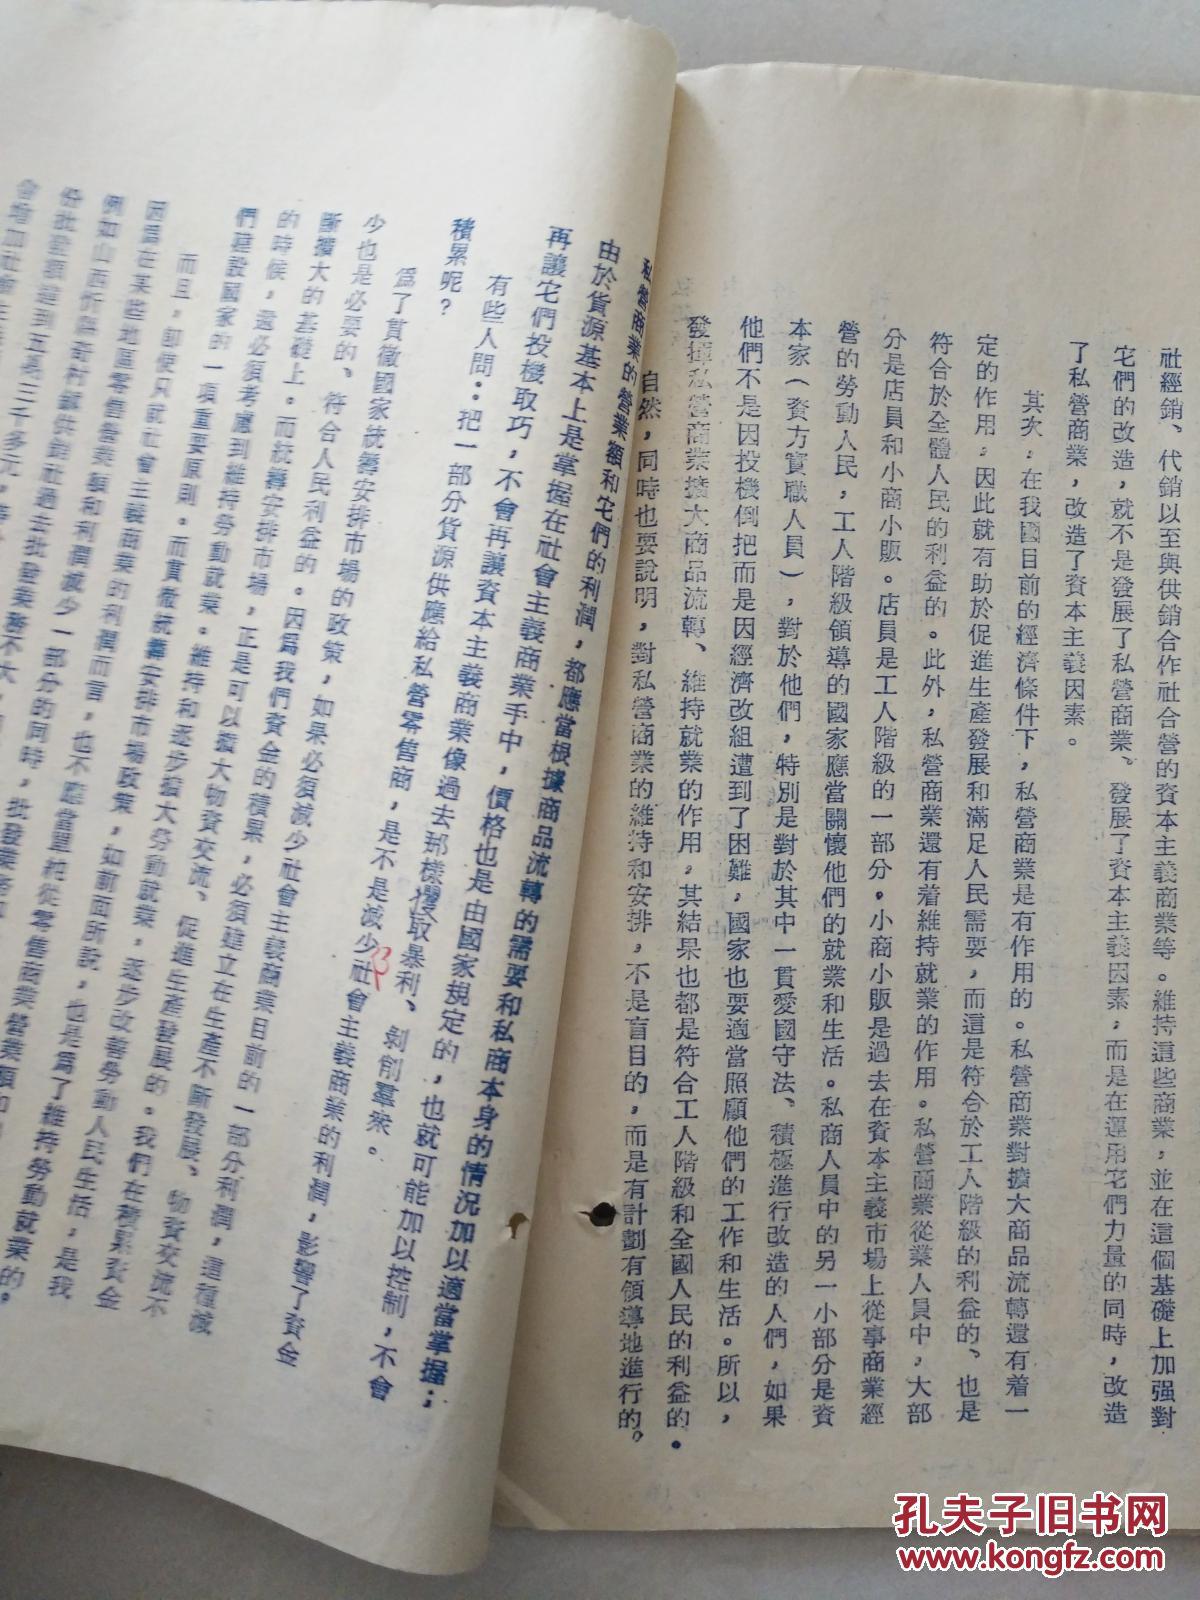 社經銷、代銷以至與供銷合作社合營的資本主義商業等。維持這些商業，並在這個基礎上加强對
宅們的改造，就不是發展了私營商業、發展了資本主義因素，而是在運用宅們力量的同時，改造
了私營商業，改造了資本主義因素。
其次，在我國目前的經濟條件下，私營商業是有作用的。私營商業對擴大商品流轉還有着一
定的作用，因此就有助於促進生產發展和滿足人民需要，而這是符合於工人階級的利益的、也是
符合於全體人民的利益的。此外，私營商業還有着維持就業的作用。私營商業從業人員中，大部
分是店員和小商小販。店員是工人階級的一部分，小商小販是過去在資本主義市場上從事商業經
營的勞動人民，工人階級領導的國家應當關懷他們的就業和生活。私商人員中的另一小部分是資
本家（資方實職人員），對於他們，特別是對於其中一貫愛國守法、積極進行改造的人們，如果
他們不是因投機倒把而是因經濟改組遭到了困難，國家也要適當照顧他們的工作和生活。所以，
發揮私營商業擴大商品流轉、維持就業的作用，其結果也都是符合工人階級和全國人民的利益的。
自然，同時也要說明，對私營商業的維持和安排，不是盲目的，而是有計劃有領導地進行的。
私營商業的營業額和宅們的利潤，都應當根據商品流轉的需要和私商本身的情況加以適當掌握；
由於貨源基本上是掌握在社會主義商業手中，價格也是由國家規定的，也就可能加以控制，不會
再讓宅們投機取巧，不會再讓資本主義商業像過去那樣攫取暴利、剝削羣衆。
有些人問：把一部分貨源供應給私營零售商，是不是減少社會主義商業的利潤，影響了資金
積累呢？
爲了貫徹國家統籌安排市場的政策，如果必須減少社會主義商業目前的一部分利潤，這種減
少也是必要的、符合人民利益的。因爲我們資金的積累，必須建立在生產不斷發展、物資交流不
斷擴大的基礎上。而統籌安排市場，正是可以擴大物資交流、促進生產發展的。我們在積累資金
的時候，還必須考慮到維持勞動就業。維持和逐步擴大勞動就業，逐步改善勞動人民生活，是我
們建設國家的一項重要原則。而貫徹統籌安排市場政策，如前面所說，也是爲了維持勞動就業的。
而且，卽使只就社會主義商業的利潤而言，也不應當單純從零售商業營業額和
因爲在某些地區零售營業額和利潤減少一部分的同時，批發業務
例如山西忻縣奇村鎮供銷社過去批發業務不大，
份批發額達到五萬三千多元，
會增加社
33
孔夫子旧书网
www.kongfz.com